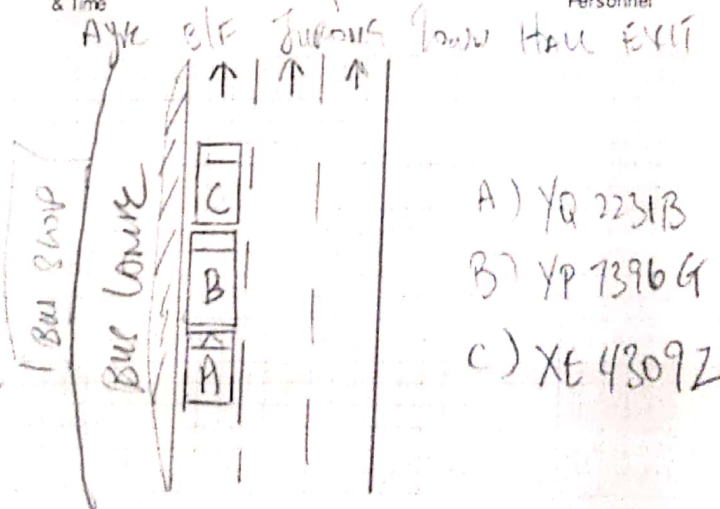 & Time
Personnel
AYE B/F Jurong Town Hall EXIT
C
B
A
Bus Stop
Bus Laine
A) YQ 2231B
B) YP 7396G
C) XE 4309Z